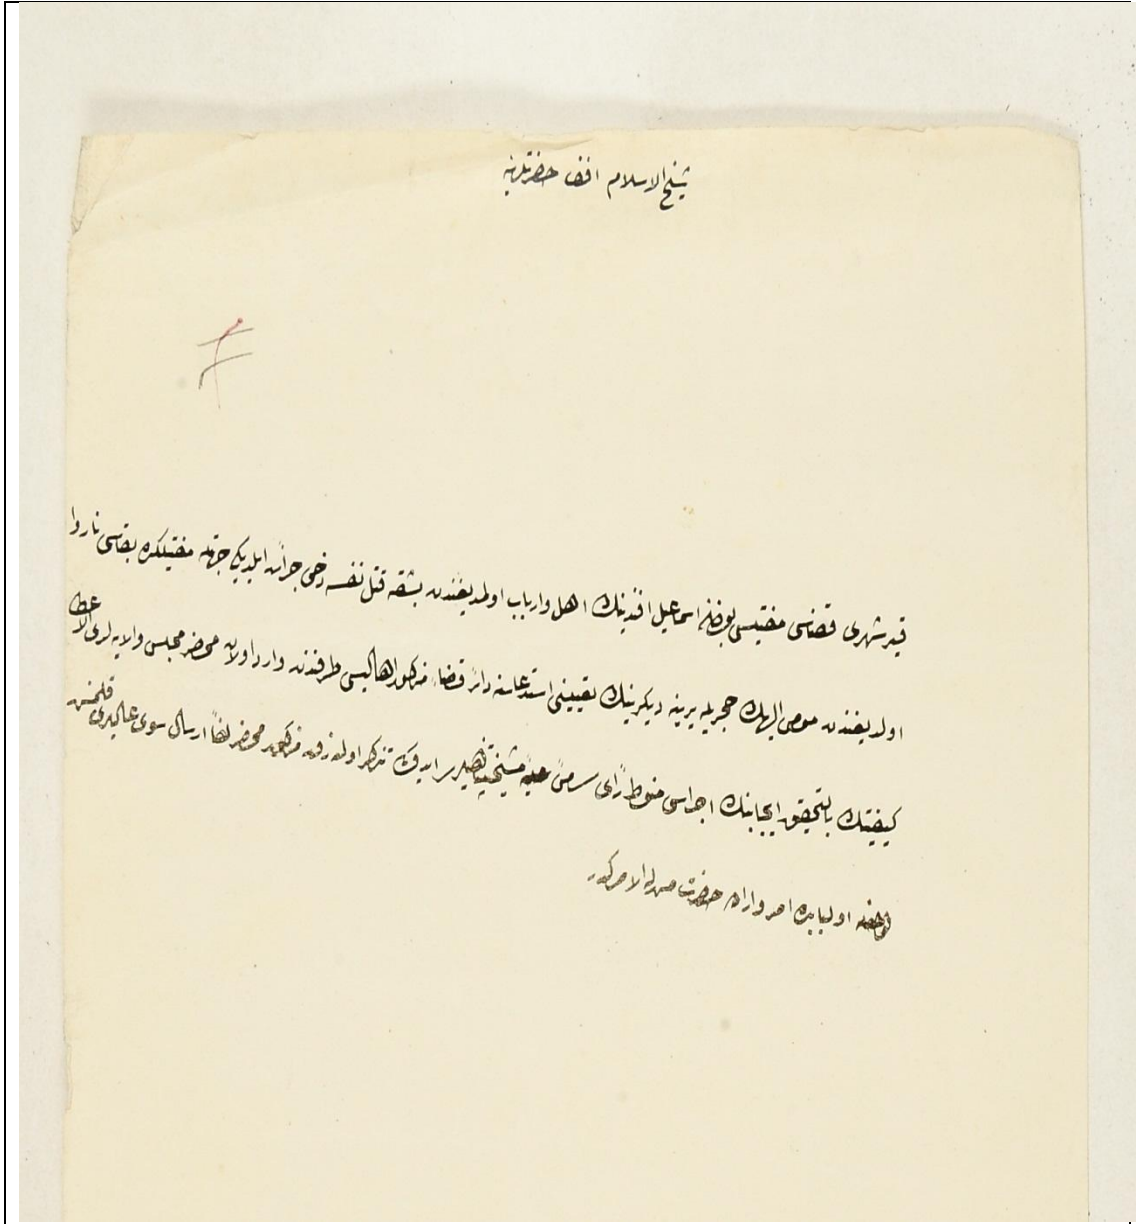 شيخ الاسلام افندی حضرتلرينه
قيرشهری قضاسی مفتيسی اسماعيل افندينك اهل وارباب اولمديغندن بشقه قتل نفسه دخی جرأت ايلديكی جهتله مفتيلكده بقاسی ناروا
اولديغندن مومی اليهك يرينه ديكرينك تعيينی استدعاسنه دائر قضاء مذكور اهاليسی طرفندن وارد اولان محضر مجلس والايه لدی الاعطا
كيفيتك بالتحقيق ايجابنك اجراسی منوط رأی اولنه رق مذكور محضر لفاً ارسال سوی عاليلری قلنمش
اولبابده امر واراده حضرت من له الامركدر